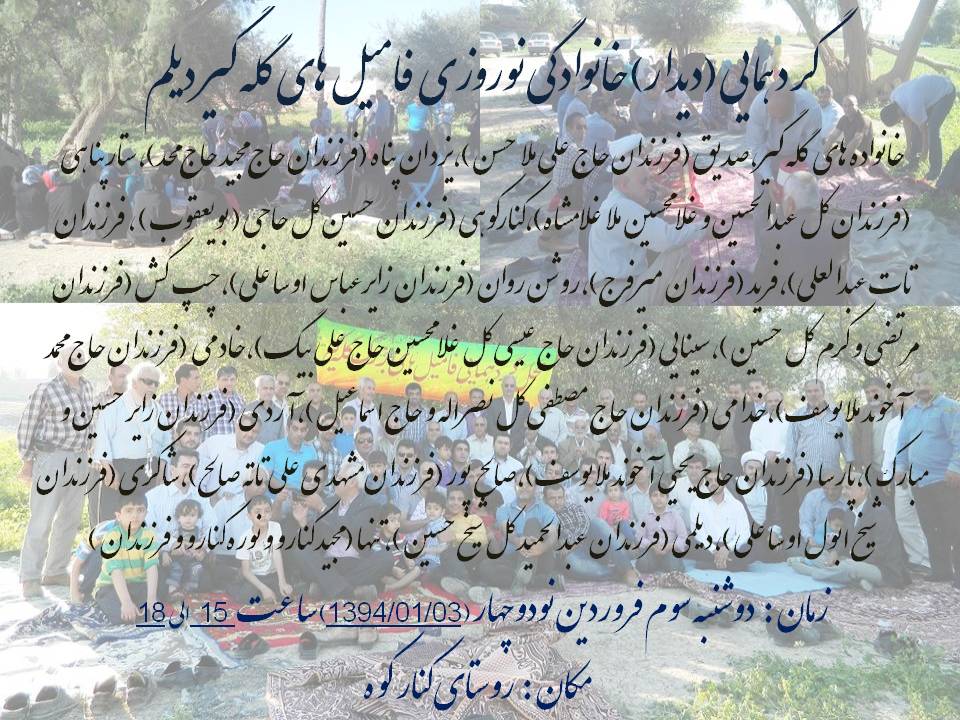 گردهمایی (دیدار) خانوادگی نوروزی فامیل های گله گیر دیلم
خانواده های گله گیر، صدیق (فرزندان حاج علی ملا حسن)، یزدان پناه (فرزندان حاج مجید حاج محمد)، ستارپناهی
(فرزندان گل عبدالحسین و غلامحسین ملا غلامشاه)، کنارکوهی (فرزندان حسین گل حاجی (بویعقوب)، فرزندان
تات عبدالعلی)، فرید (فرزندان میرفرج)، روشن روان (فرزندان زایرعباس اوساعلی)، چپ کش (فرزندان
مرتضی و کرم گل حسین)، سینایی (فرزندان حاج عیسی گل غلامحسین حاج علی بیک)، خادمی (فرزندان حاج محمد
آخوند ملا یوسف)، خدامی (فرزندان حاج مصطفی گل نصراله و حاج اسماعیل)، آردی (فرزندان زایر حسین و
مبارک)، پارسا (فرزندان حاج یحیی آخوند ملا یوسف)، صالح پور (فرزندان مشهدی علی تاته صالح)، شاکری (فرزندان
شیخ ابول اوساعلی)، دیلمی (فرزندان عبدالحمید گل شیخ حسین)، تنها (مجید کنارو و نوره کنارو و فرزندان)
زمان : دوشنبه سوم فروردین نود و چهار (1394/01/03) ساعت 15 الی 18
مکان : روستای کنار کوه